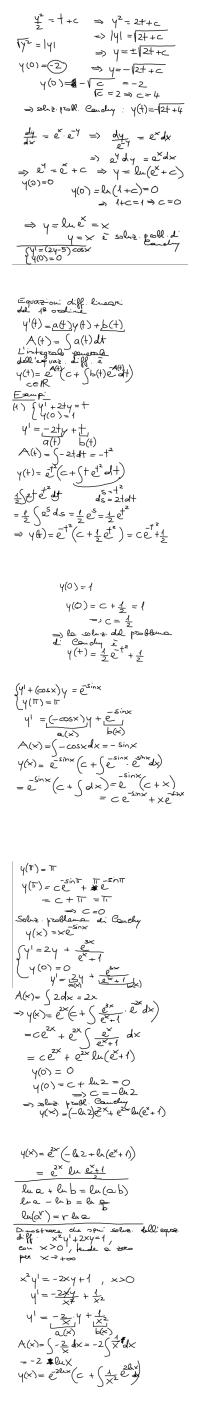 y²/2 = t+c ⇒ y² = 2t+c
√y² = |y| ⇒ |y| = √2t+c
⇒ y = ±√2t+c
y(0) = -2 ⇒ y = -√2t+c
y(0) = -√c = -2
√c = 2 ⇒ c = 4
⇒ soluz. probl. Cauchy: y(t) = -√2t+4
dy/dx = eˣ e⁻ʸ ⇒ dy/e⁻ʸ = eˣdx
⇒ eʸdy = eˣdx
⇒ eʸ = eˣ+c ⇒ y = ln(eˣ+c)
y(0)=0 y(0) = ln(1+c) = 0
⇒ 1+c=1 ⇒ c=0
⇒ y = ln eˣ = x
y = x è soluz. probl. di Cauchy
{y' = (2y-5)cosx
{y(0)=0
Equazioni diff. lineari
del 1° ordine
y'(t) = a(t)y(t)+b(t)
A(t) = ∫a(t)dt
L'integrale generale
dell'equaz. diff. è
y(t) = e^A(t)(c+∫b(t)e^-A(t)dt)
c∈ℝ
Esempi
(1) {y'+2ty = t
{y(0)=1
y' = -2ty+t
a(t) b(t)
A(t) = ∫-2tdt = -t²
y(t) = e^-t²(c+∫t e^t² dt)
1/2∫2t e^t² dt s=t² ds=2tdt
= 1/2∫eˢds = 1/2 eˢ = 1/2 e^t²
⇒ y(t) = e^-t²(c+1/2 e^t²) = ce^-t²+1/2
y(0)=1
y(0) = c+1/2 = 1
⇒ c = 1/2
⇒ la soluz. del problema
di Cauchy è
y(t) = 1/2 e^-t²+1/2
{y'+(cosx)y = e^-sinx
{y(π)=π
y' = (-cosx)y+e^-sinx
a(x) b(x)
A(x) = ∫-cosxdx = -sinx
y(x) = e^-sinx(c+∫e^-sinx · e^sinx dx)
= e^-sinx(c+∫dx) = e^-sinx(c+x)
= ce^-sinx+xe^-sinx
y(π) = π
y(π) = ce^-sinπ+πe^-sinπ
= c+π = π
⇒ c=0
Soluz. problema di Cauchy
y(x) = xe^-sinx
{y' = 2y+e³ˣ/(eˣ+1)
{y(0)=0
y' = 2y+e³ˣ/(eˣ+1)
a(x) b(x)
A(x) = ∫2dx = 2x
⇒ y(x) = e²ˣ(c+∫e³ˣ/(eˣ+1) · e⁻²ˣdx)
= ce²ˣ+e²ˣ∫eˣ/(eˣ+1) dx
= ce²ˣ+e²ˣ ln(eˣ+1)
y(0)=0
y(0) = c+ln2 = 0
⇒ c = -ln2
⇒ soluz. probl. Cauchy
y(x) = (-ln2)e²ˣ+e²ˣ ln(eˣ+1)
y(x) = e²ˣ(-ln2+ln(eˣ+1))
= e²ˣ ln (eˣ+1)/2
ln a+ln b = ln(ab)
ln a-ln b = ln a/b
ln(aʳ) = r ln a
Dimostrare che ogni soluz. dell'equaz.
diff. x²y'+2xy=1,
con x>0, tende a zero
per x→+∞
x²y' = -2xy+1, x>0
y' = -2xy/x²+1/x²
y' = -2/x y+1/x²
a(x) b(x)
A(x) = ∫-2/x dx = -2∫1/x dx
= -2 lnx
y(x) = e^-2lnx(c+∫1/x² e^2lnx dx)